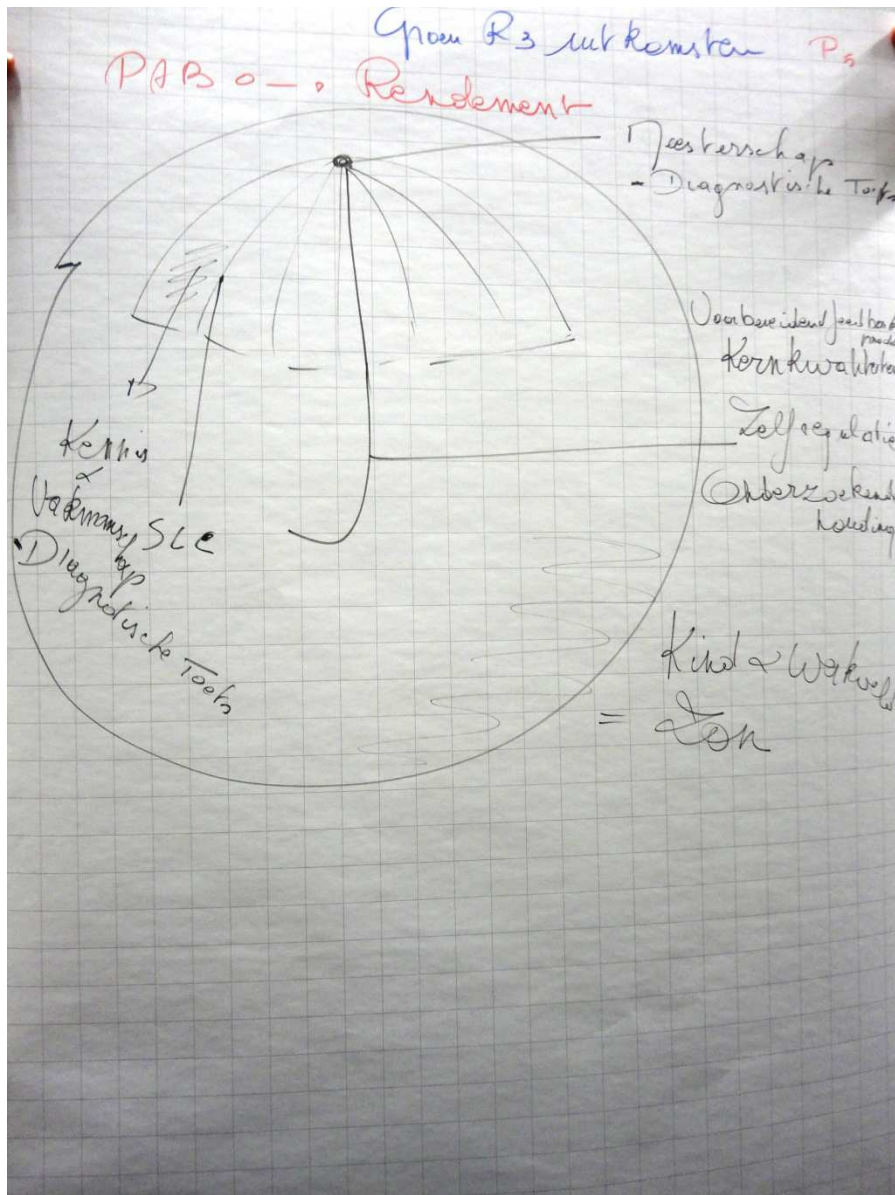 Groen R3 uitkomsten P5
PABO → Rendement
Meesterschap
- Diagnostische Toets
Voorbereidend feedback
Kernkwaliteiten
Zelfregulatie
Onderzoekende
houding
Kennis
&
Vakmanschap
Diagnostische Toets
SLC
Kind & Werkveld
= Zon